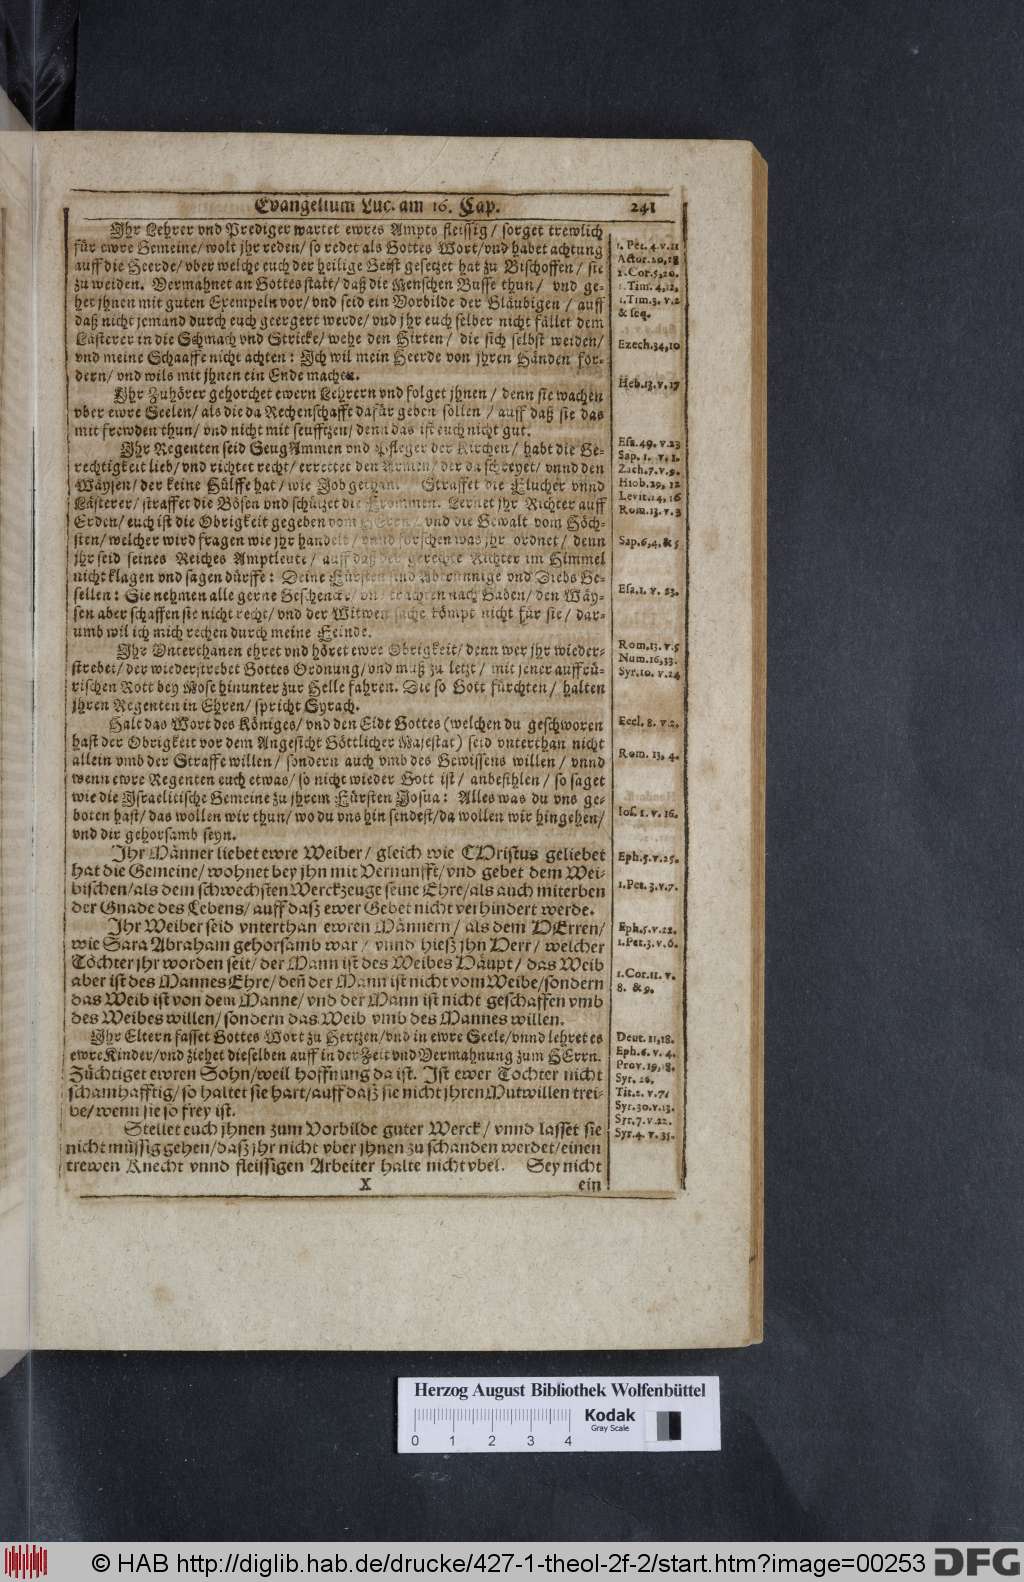 Evangelium Luc. am 16. Cap.
241
Ihr Lehrer vnd Prediger wartet ewres Ampts fleissig / sorget trewlich
für ewre Gemeine / wolt jhr reden / so redet als Gottes Wort / vnd habet achtung
auff die Heerde / vber welche euch der heilige Geist gesetzet hat zu Bischoffen / sie
zu weiden. Vermahnet an Gottes statt / daß die Menschen Busse thun / vnd ge-
het jhnen mit guten Exempeln vor / vnd seid ein Vorbilde der Gläubigen / auff
daß nicht jemand durch euch geergert werde / vnd jhr euch selber nicht fället dem
Lästerer in die Schmach vnd Stricke / wehe den Hirten / die sich selbst weiden /
vnd meine Schaaffe nicht achten: Ich wil mein Heerde von jhren Händen for-
dern / vnd wils mit jhnen ein Ende machen.
Ihr Zuhörer gehorchet ewern Lehrern vnd folget jhnen / denn sie wachen
vber ewre Seelen / als die da Rechenschafft dafür geben sollen / auff daß sie das
mit frewden thun / vnd nicht mit seufftzen / denn das ist euch nicht gut.
Ihr Regenten seid SeugAmmen vnd Pfleger der Kirchen / habt die Ge-
rechtigkeit lieb / vnd richtet recht / errettet den Armen / der da schreyet / vnnd den
Wäysen / der keine Hülffe hat / wie Job gethan. Straffet die Flucher vnnd
Lästerer / straffet die Bösen vnd schützet die Frommen. Lernet jhr Richter auff
Erden / euch ist die Obrigkeit gegeben vom HErrn / vnd die Gewalt vom Höch-
sten / welcher wird fragen wie jhr handelt / vnnd forschen was jhr ordnet / denn
jhr seid seines Reiches Amptleute / auff daß der gerechte Richter im Himmel
nicht klagen vnd sagen dürffe: Deine Fürsten sind Abtrünnige vnd Diebs Ge-
sellen: Sie nehmen alle gerne Geschencke / vnd trachten nach Gaben / den Wäy-
sen aber schaffen sie nicht recht / vnd der Witwen sache kömpt nicht für sie / dar-
umb wil ich mich rechen durch meine Feinde.
Ihr Vnterthanen ehret vnd höret ewre Obrigkeit / denn wer jhr wieder-
strebet / der wiederstrebet Gottes Ordnung / vnd muß zu letzt / mit jener auffrü-
rischen Rott bey Mose hinunter zur Helle fahren. Die so Gott fürchten / halten
jhren Regenten in Ehren / spricht Syrach.
Halt das Wort des Königes / vnd den Eidt Gottes (welchen du geschworen
hast der Obrigkeit vor dem Angesicht Göttlicher Majestat) seid vnterthan nicht
allein vmb der Straffe willen / sondern auch vmb des Gewissens willen / vnnd
wenn ewre Regenten euch etwas / so nicht wieder Gott ist / anbefihlen / so saget
wie die Israelitische Gemeine zu jhrem Fürsten Josua: Alles was du vns ge-
boten hast / das wollen wir thun / wo du vns hin sendest / da wollen wir hingehen /
vnd dir gehorsamb seyn.
Ihr Männer liebet ewre Weiber / gleich wie CHristus geliebet
hat die Gemeine / wohnet bey jhn mit Vernunfft / vnd gebet dem Wei-
bischen / als dem schwechsten Werckzeuge seine Ehre / als auch miterben
der Gnade des Lebens / auff daß ewer Gebet nicht verhindert werde.
Ihr Weiber seid vnterthan ewren Männern / als dem HErren /
wie Sara Abraham gehorsamb war / vnnd hieß jhn Herr / welcher
Töchter jhr worden seit / der Mann ist des Weibes Häupt / das Weib
aber ist des Mannes Ehre / deñ der Mann ist nicht vom Weibe / sondern
das Weib ist von dem Manne / vnd der Mann ist nicht geschaffen vmb
des Weibes willen / sondern das Weib vmb des Mannes willen.
Ihr Eltern fasset Gottes Wort zu Hertzen / vnd in ewre Seele / vnnd lehret es
ewre Kinder / vnd ziehet dieselben auff in der Zeit vnd Vermahnung zum HErrn.
Züchtiget ewren Sohn / weil hoffnung da ist. Ist ewer Tochter nicht
schamhafftig / so haltet sie hart / auff daß sie nicht jhren Mutwillen trei-
be / wenn sie so frey ist.
Stellet euch jhnen zum Vorbilde guter Werck / vnnd lasset sie
nicht müssig gehen / daß jhr nicht vber jhnen zu schanden werdet / einen
trewen Knecht vnnd fleissigen Arbeiter halte nicht vbel. Sey nicht
X
ein
1. Pet. 4. v. 11
Actor. 20, 28
2. Cor. 5, 20.
1. Tim. 4, 12.
1. Tim. 3. v. 2
& seq.
Ezech. 34, 10
Heb. 13. v. 17
Esa. 49. v. 23
Sap. 1. v. 1.
Zach. 7. v. 9.
Hiob. 29, 12
Levit. 24, 16
Rom. 13. v. 3
Sap. 6, 4. & 5
Esa. 1. v. 23.
Rom. 13. v. 5
Num. 16, 33.
Syr. 10. v. 24
Eccl. 8. v. 2.
Rom. 13, 4.
Ios. 1. v. 16.
Eph. 5. v. 25.
1. Pet. 3. v. 7.
Eph. 5. v. 22.
1. Pet. 3. v. 6.
1. Cor. 11. v.
8. & 9.
Deut. 11, 18.
Eph. 6. v. 4.
Prov. 19, 18.
Syr. 26,
Tit. 2. v. 7.
Syr. 30. v. 13.
Syr. 7. v. 22.
Syr. 4. v. 35.
Herzog August Bibliothek Wolfenbüttel
Kodak
Gray Scale
0 1 2 3 4
© HAB http://diglib.hab.de/drucke/427-1-theol-2f-2/start.htm?image=00253
DFG